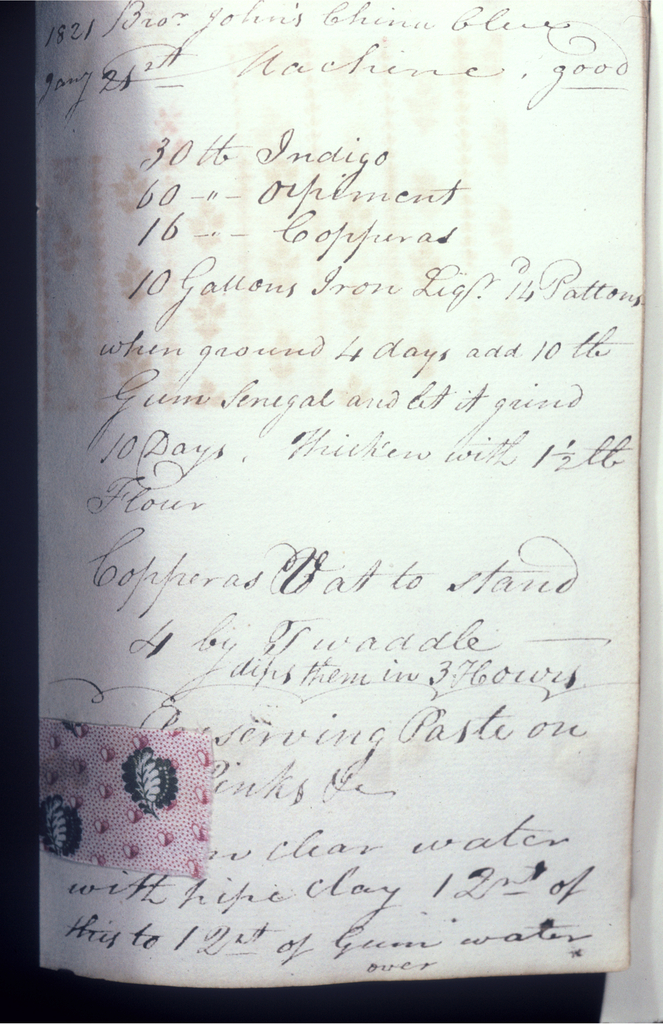 1821 Bror. John's China Blue
Jany 21st Machine. good
30 lb Indigo
60 -"- Orpiment
16 -"- Copperas
10 Gallons Iron Liqr. 14 Pattons
when ground 4 days add 10 lb
Gum Senegal and let it grind
10 Days. Thicken with 1½ lb
Flour
Copperas Vat to stand
4 by Twaddle
dips them in 3 Hours
serving Paste on
inks &c
clear water
with pipe Clay 1 2rt of
this to 1 2rt of Gum water
over